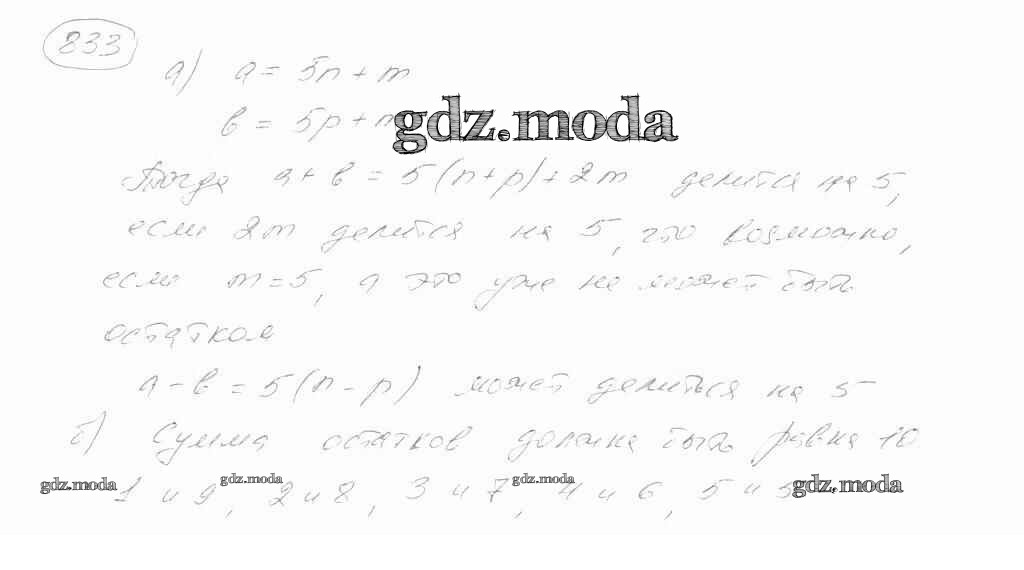 833
а) a = 5n + m
в = 5p + m
gdz.moda
Тогда a + в = 5(n+p) + 2m делится на 5,
если 2m делится на 5, что возможно,
если m = 5, а это уже не может быть
остатком
a - в = 5(n - p) может делиться на 5
б) Сумма остатков должна быть равна 10
1 и 9, 2 и 8, 3 и 7, 4 и 6, 5 и 5
gdz.moda gdz.moda gdz.moda gdz.moda